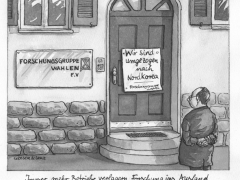 FORSCHUNGSGRUPPE
WAHLEN
E.V
Wir sind
umgezogen
nach
Nordkorea
Immer mehr Betriebe verlagern Forschung ins Ausland